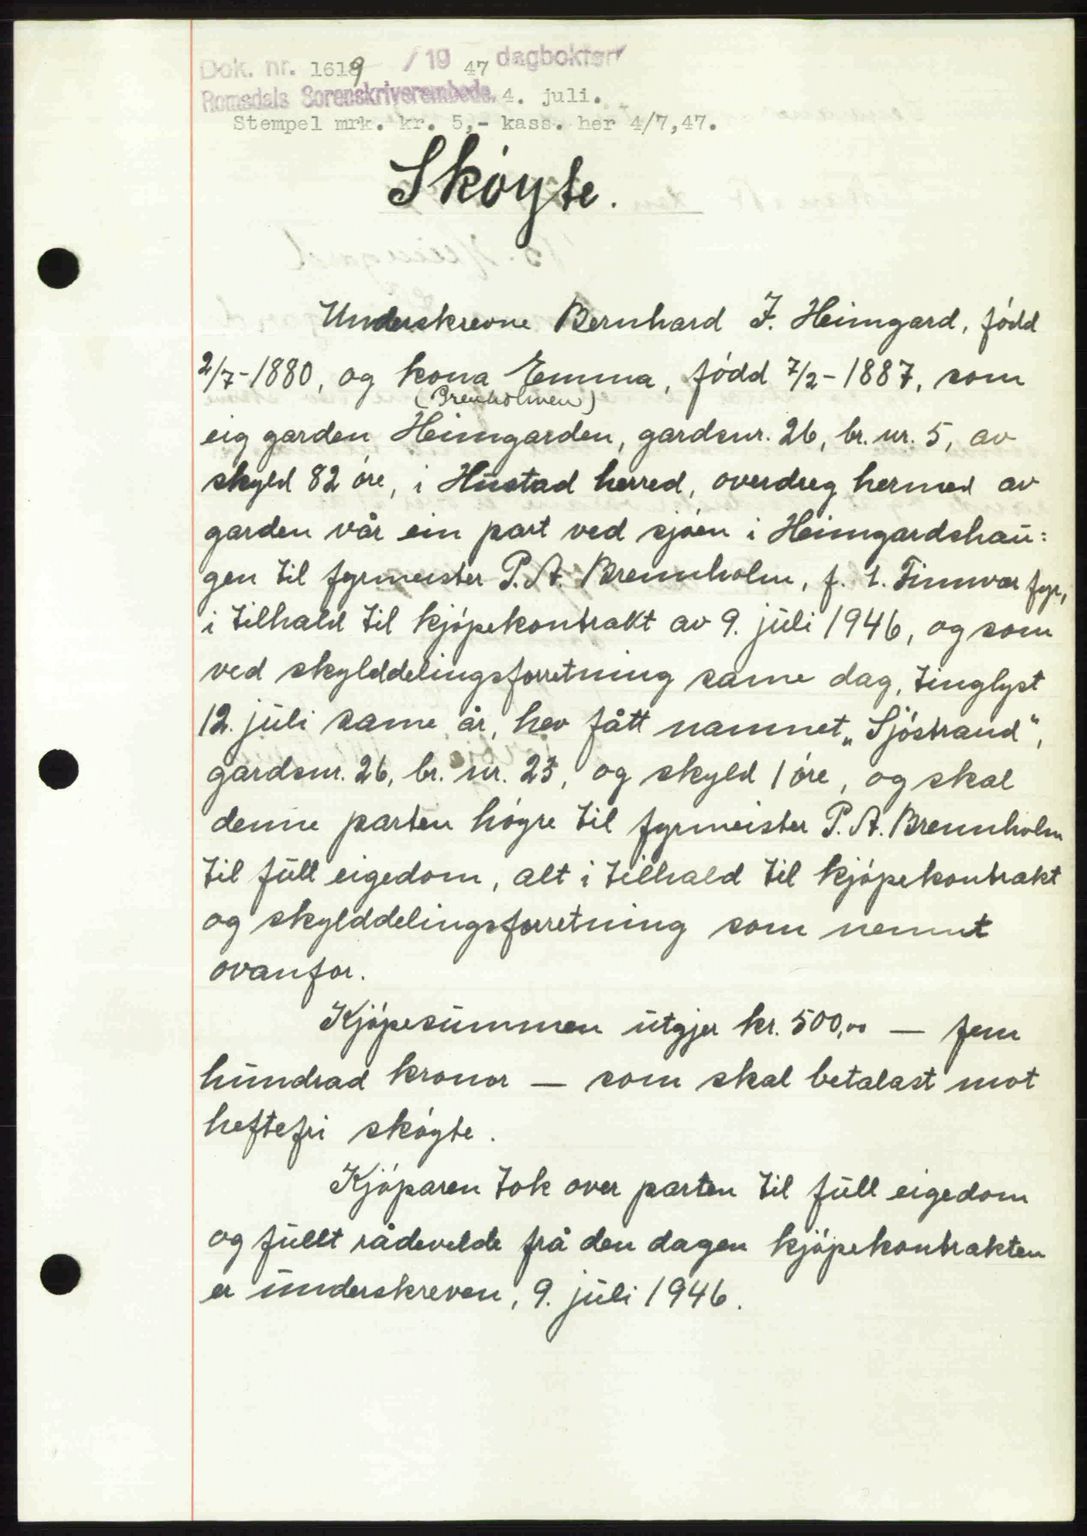 Dok. nr. 1619 / 19 47 dagbokført
Romsdals Sorenskriverembede. 4. juli.
Stempel mrk. kr. 5,- kass. her 4/7,47.
Skøyte.
Underskrevne Bernhard J. Heimgard, fødd
2/7-1880, og kona Emma, fødd 7/2-1887, som
(Brenholmen)
eig garden Heimgarden, gardsnr. 26, br. nr. 5, av
skyld 82 øre, i Hustad herred, overdreg hermed av
garden vår ein part ved sjøen i Heimgardshau:
gen til fyrmeister P. A. Brennholm, f. t. Finnvær fyr,
i tilhald til kjøpekontrakt av 9. juli 1946, og som
ved skylddelingsforretning same dag, tinglyst
12. juli same år, hev fått namnet „Sjøstrand“,
gardsnr. 26, br. nr. 25, og skyld 1 øre, og skal
denne parten høyre til fyrmeister P. A. Brennholm
til full eigedom, alt i tilhald til kjøpekontrakt
og skylddelingsforretning som nemnt
ovanfor.
Kjøpesummen utgjer kr. 500,00 — fem
hundrad kronor — som skal betalast mot
heftefri skøyte.
Kjøparen tok over parten til full eigedom
og fullt rådevelde frå den dagen kjøpekontrakten
er underskreven, 9. juli 1946.